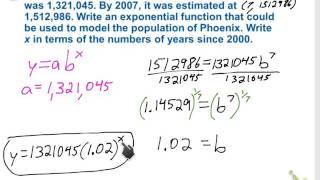 was 1,321,045. By 2007, it was estimated at (7, 1512986)
1,512,986. Write an exponential function that could
be used to model the population of Phoenix. Write
x in terms of the numbers of years since 2000.
y=ab^x
a=1,321,045
1512986 = 1321045b^7
1321045 1321045
(1.14529)^1/7 = (b^7)^1/7
1.02 = b
y=1321045(1.02)^x